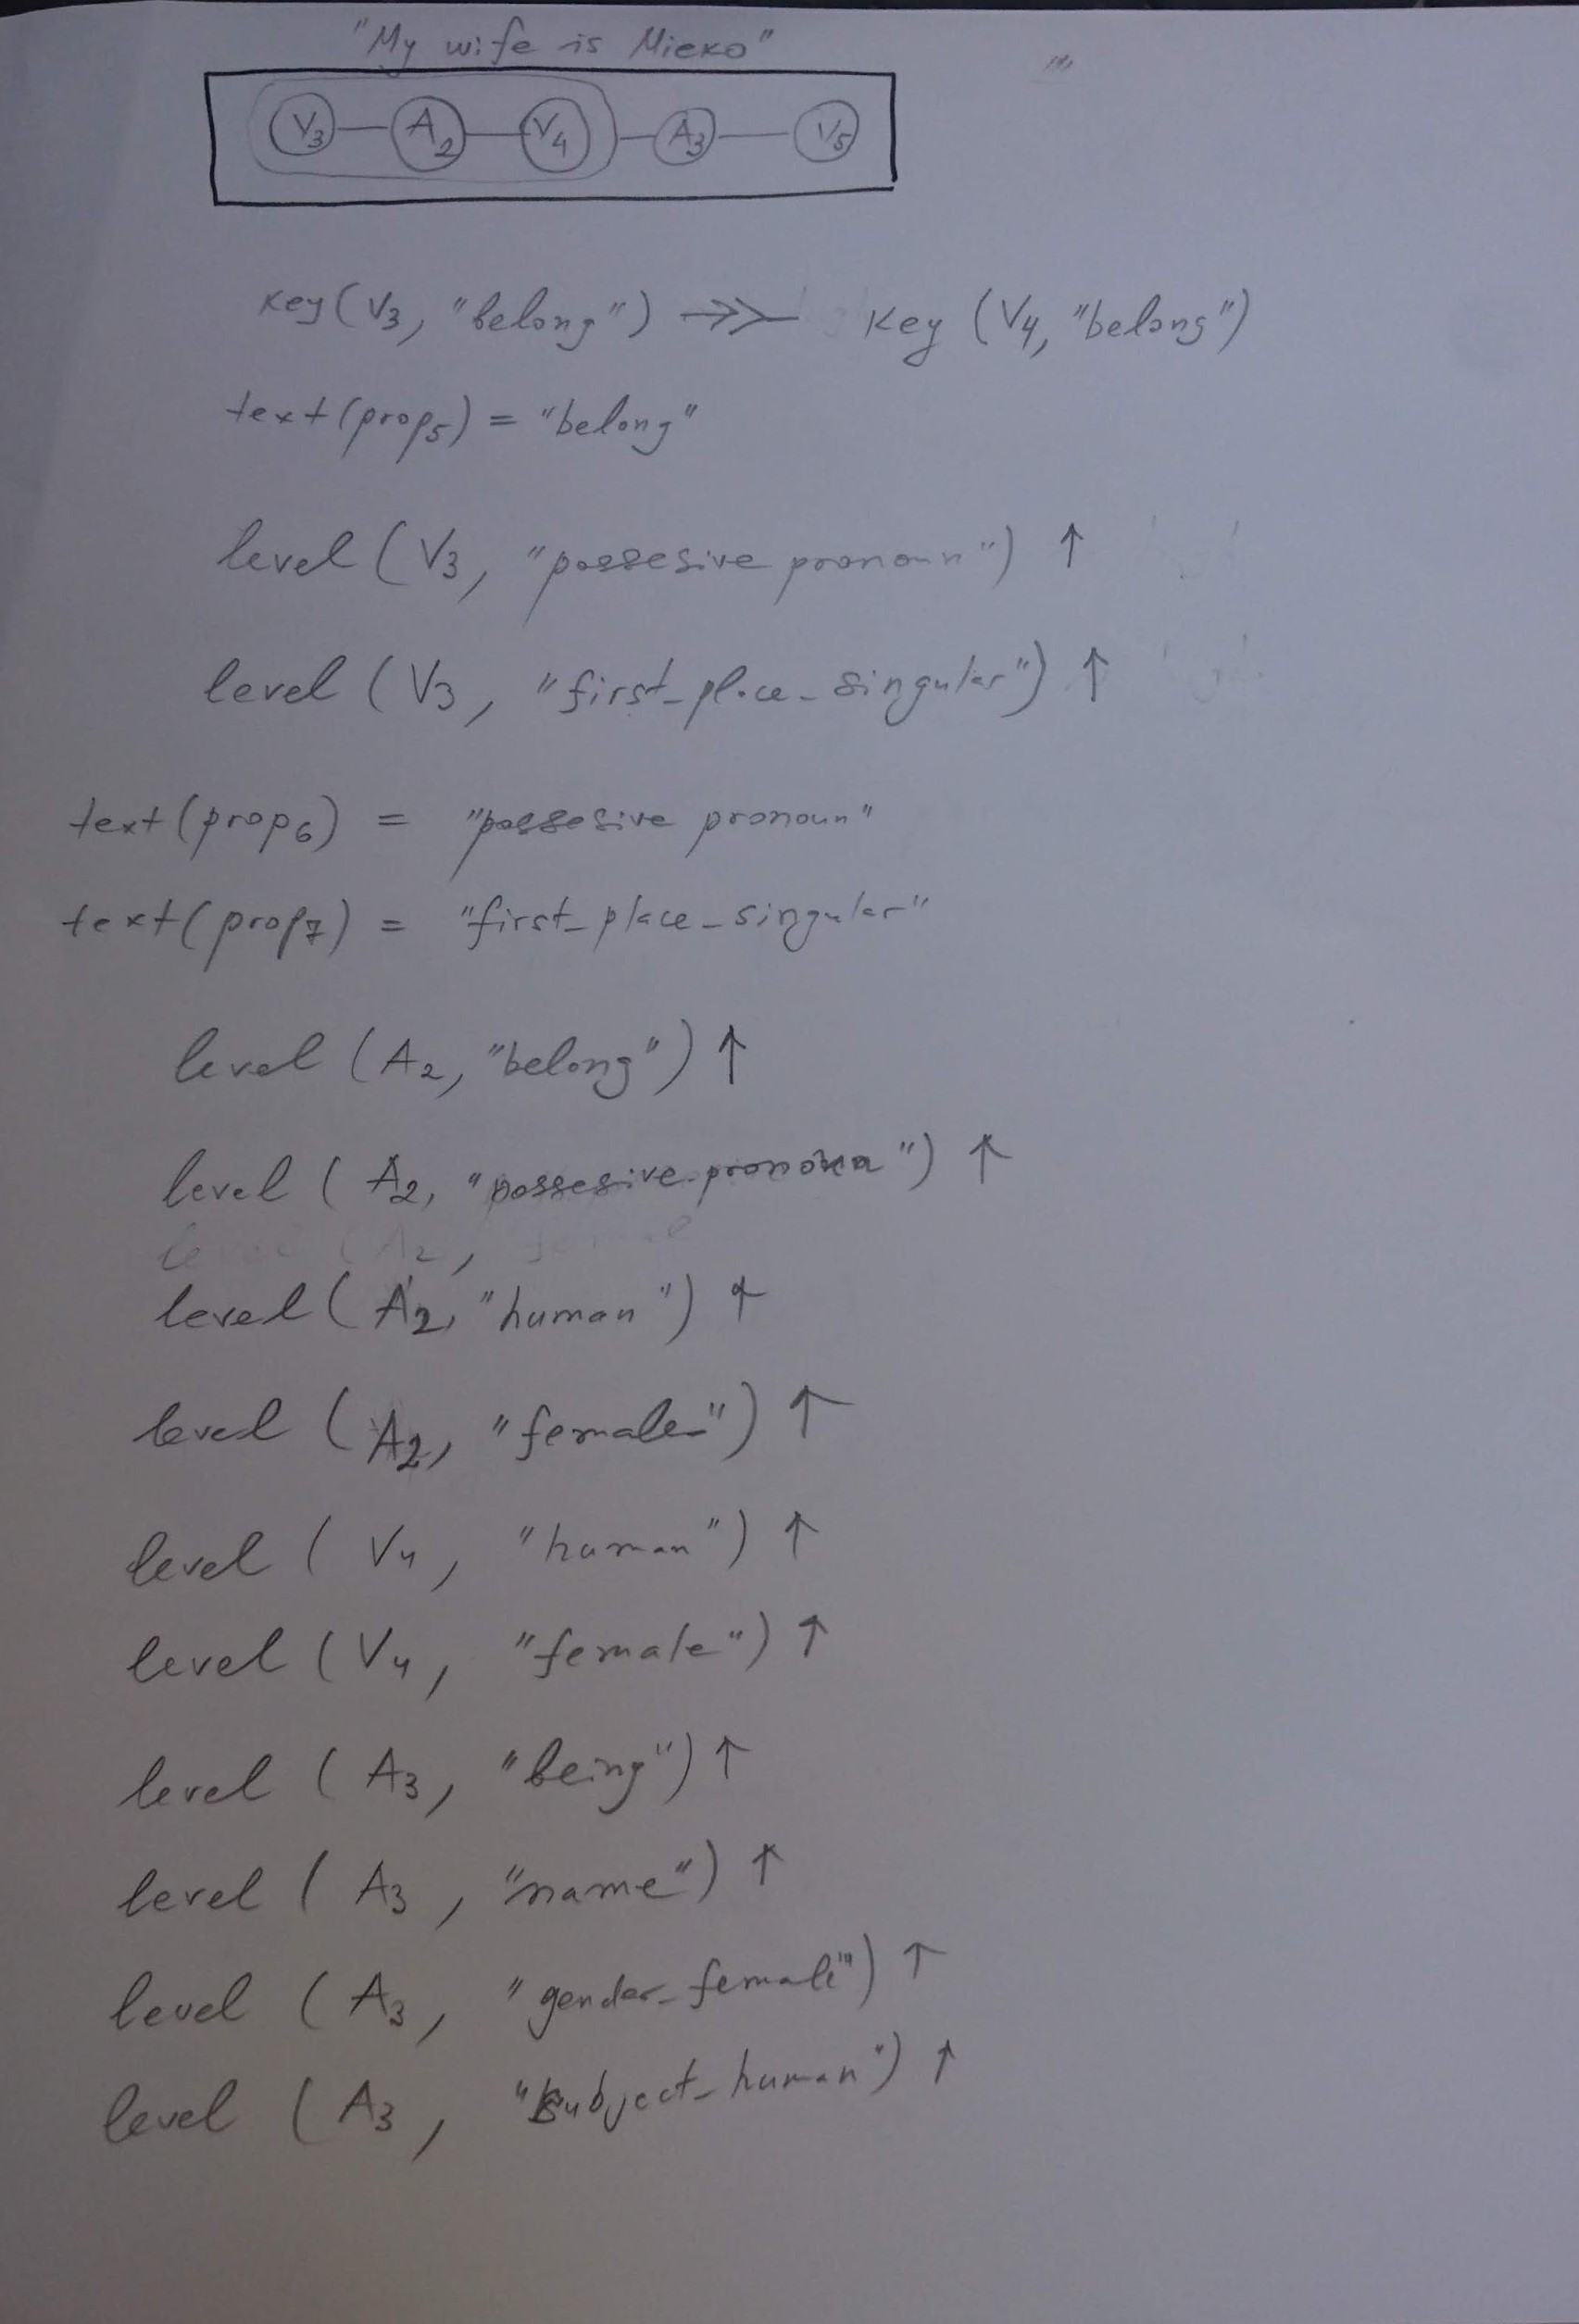 "My wife is Mieko"
V3 — A2 — V4 — A3 — V5
Key(V3, "belong") →>> Key (V4, "belong")
text(prop5) = "belong"
level (V3, "possesive pronoun") ↑
level (V3, "first_place_singular") ↑
text(prop6) = "possesive pronoun"
text(prop7) = "first_place_singular"
level (A2, "belong") ↑
level (A2, "possesive pronoun") ↑
level (A2,
level (A2, "human") ↑
level (A2, "female") ↑
level (V4, "human") ↑
level (V4, "female") ↑
level (A3, "being") ↑
level (A3, "name") ↑
level (A3, "gender_female") ↑
level (A3, "subject_human") ↑